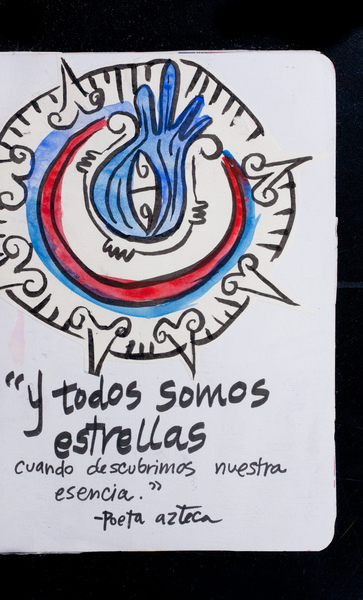 "y todos somos
estrellas
cuando descubrimos nuestra
esencia."
-Poeta azteca